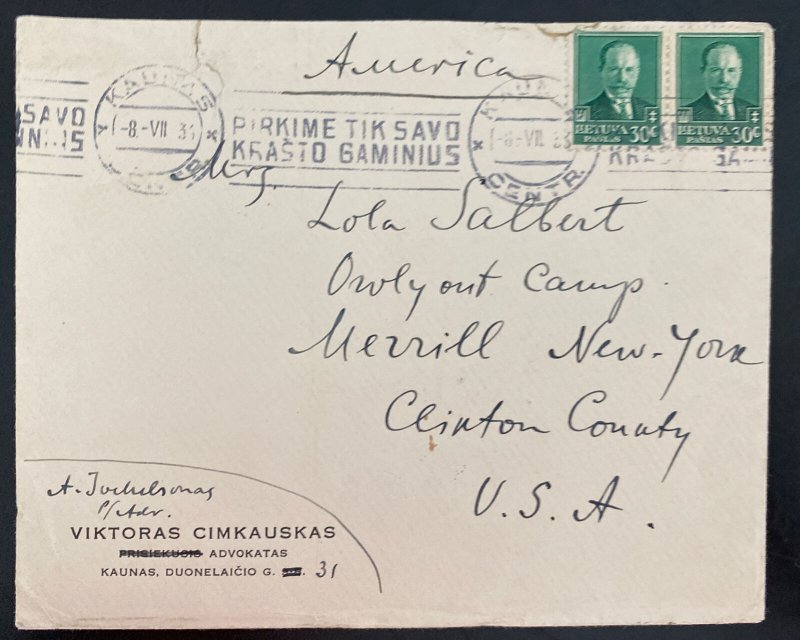 America
SAVO
KAUNAS
-8.-VII 3
PIRKIME TIK SAVO
KRAŠTO GAMINIUS
-8.-VII 33
CENTR.
LIETUVA 30c
PAŠTAS
LIETUVA 30c
PAŠTAS
Mrs.
Lola Salbert
Owlyout Camp.
Merrill New-York
Clinton County
U.S.A.
A. Jochelsonas
P/Adv.
VIKTORAS CIMKAUSKAS
PRISIEKUSIS ADVOKATAS
KAUNAS, DUONELAIČIO G. 31